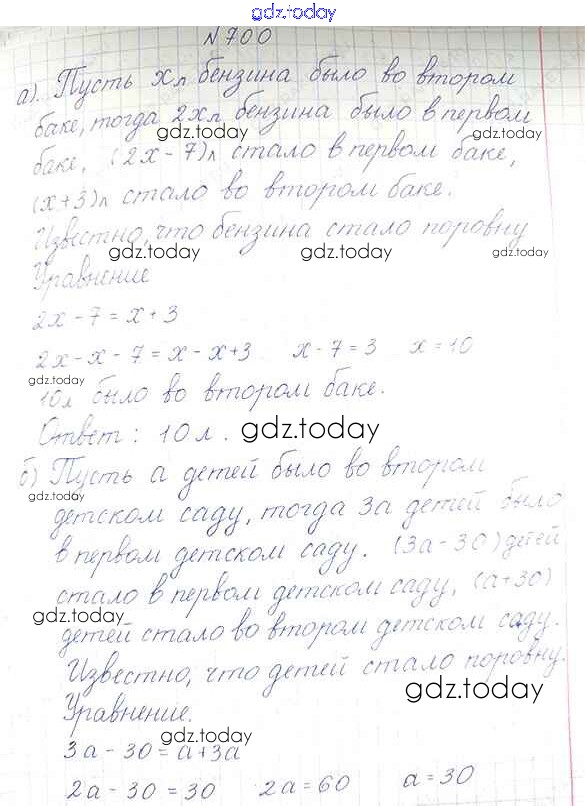 gdz.today
№700
а). Пусть xл бензина было во втором
баке, тогда 2xл бензина было в первом
gdz.today gdz.today
баке, (2x-7)л стало в первом баке,
(x+3)л стало во втором баке.
Известно, что бензина стало поровну
gdz.today gdz.today gdz.today
Уравнение
2x-7=x+3
2x-x-7=x-x+3 x-7=3 x=10
gdz.today
10л было во втором баке.
Ответ: 10л. gdz.today
б) Пусть a детей было во втором
gdz.today
детском саду, тогда 3a детей было
в первом детском саду. (3a-30) детей
стало в первом детском саду, (a+30)
gdz.today
детей стало во втором детском саду.
Известно, что детей стало поровну.
gdz.today
Уравнение.
gdz.today
3a-30=a+3a
2a-30=30 2a=60 a=30